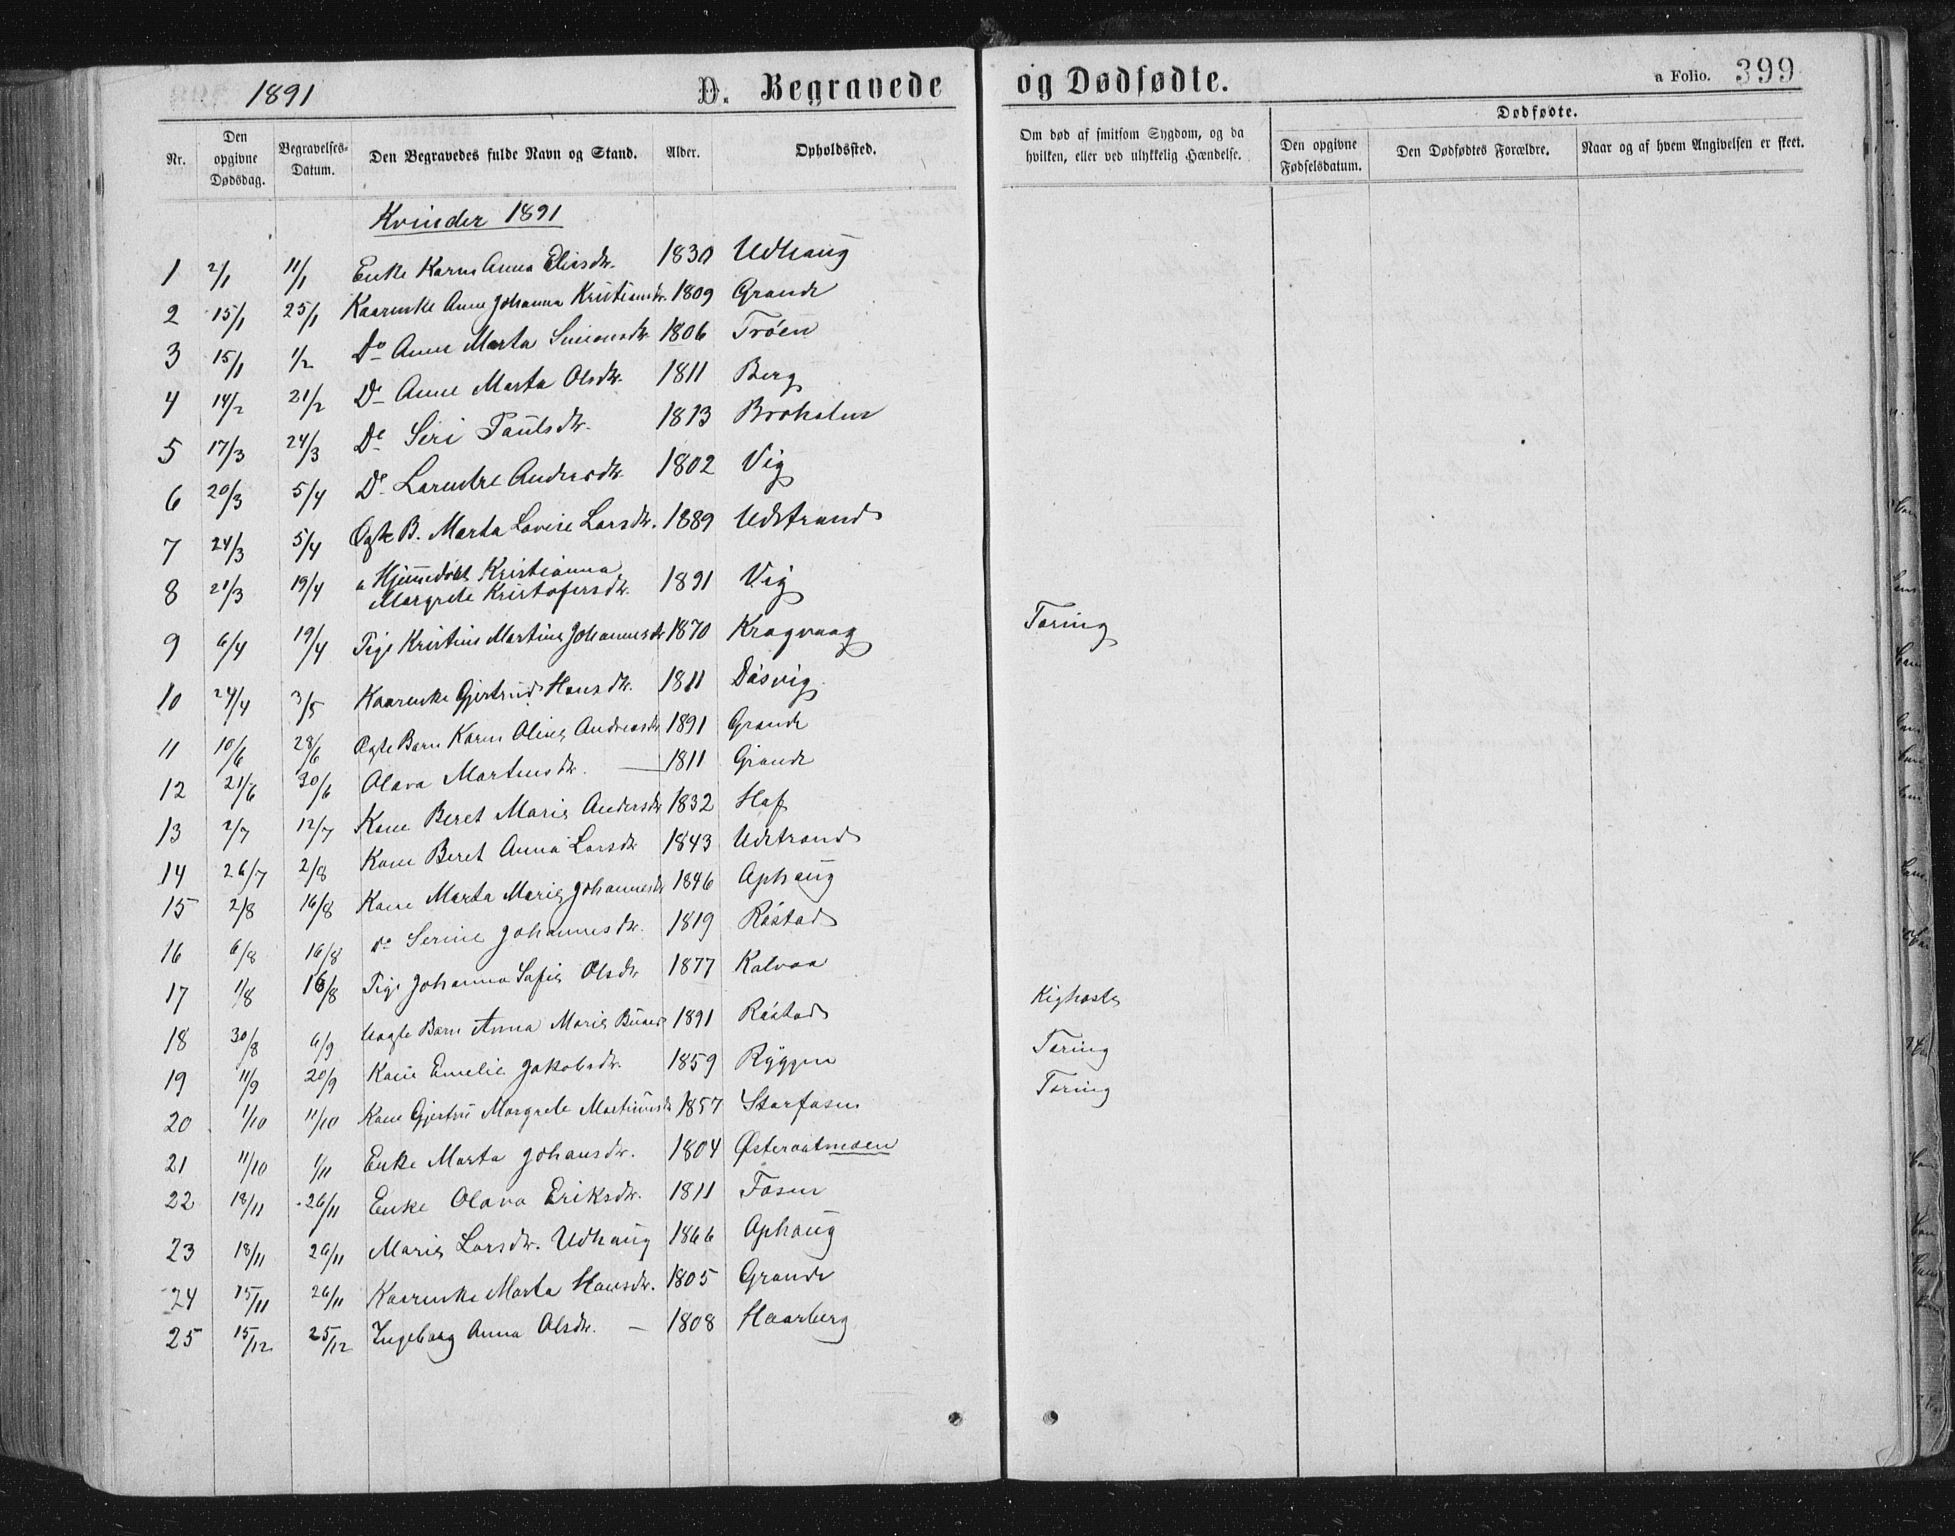 1891
D. Begravede og Dødfødte.
a Folio. 399
Nr.
Den opgivne Dødsdag.
Begravelses-Datum.
Den Begravedes fulde Navn og Stand.
Alder.
Opholdssted.
Om død af smitsom Sygdom, og da hvilken, eller ved ulykkelig Hændelse.
Dødfødte.
Den opgivne Fødselsdatum.
Den Dødfødtes Forældre.
Naar og af hvem Angivelsen er skeet.
Kvinder 1891
1 2/1 11/1 Enke Karen Anna Eliasdtr. 1830 Udhaug
2 15/1 25/1 Kaarenke Anne Johanna Kristiansdtr. 1809 Grande
3 15/1 1/2 Do Anne Marta Simonsdtr 1806 Trøen
4 14/2 21/2 Do Anne Marta Olsdtr. 1811 Berg
5 17/3 24/3 Do Seri Paulsdtr. 1813 Broholm
6 20/3 5/4 Do Lorentse Andersdtr. 1802 Vig
7 24/3 5/4 Ægte B. Marta Lovise Larsdtr. 1889 Udstrand
8 21/3 19/4 " Hjemmedøbt Kristianna Margrete Kristofersdtr. 1891 Vig
9 6/4 19/4 Pige Kristine Martine Johannesdtr 1870 Kragvaag Tæring
10 24/4 3/5 Kaarenke Gjertrud Hansdtr. 1811 Døsvig
11 10/6 28/6 Ægte Barn Karen Oline Andreasdtr 1891 Grande
12 21/6 30/6 Olava Martinsdtr. — 1811 Grande
13 2/7 12/7 Kone Beret Marie Andersdtr 1832 Hof
14 26/7 2/8 Kone Beret Anna Larsdtr 1843 Udstrand
15 2/8 16/8 Kone Marta Marie Johannesdtr 1846 Aphaug
16 6/8 16/8 do Serine Johannesdtr. 1819 Røstad
17 11/8 16/8 Pige Johanna Sofie Olsdtr 1877 Kalvaa
18 30/8 6/9 Uægte Barn Anna Marie 1891 Røstad Kighoste
19 11/9 20/9 Kone Emelie Jakobsdtr. 1859 Ryggen Tæring
20 1/10 11/10 Kone Gjertru Margrete Martinusdtr 1857 Storfosen Tæring
21 11/10 1/11 Enke Marta Johansdtr. 1804 Østeraatmoen
22 18/11 26/11 Enke Olava Eriksdtr. 1811 Fosen
23 18/11 26/11 Marie Larsdtr. Udhaug 1866 Aphaug
24 15/11 26/11 Kaarenke Marta Hansdtr. 1805 Grande
25 15/12 25/12 Ingeborg Anna Olsdtr. — 1808 Haarberg